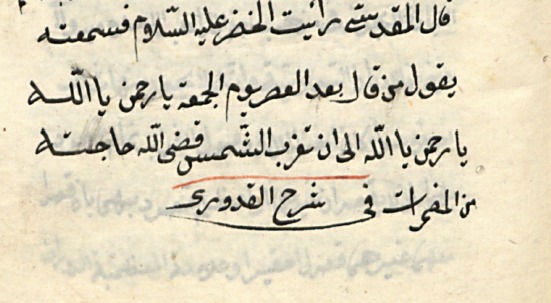 قال المقدسي رأيت الخضر عليه السلام فسمعته
يقول من قال بعد العصر يوم الجمعة يا رحمن يا الله
يا رحمن يا الله الى ان تغرب الشمس قضى الله حاجته
من المضمرات في شرح القدورى